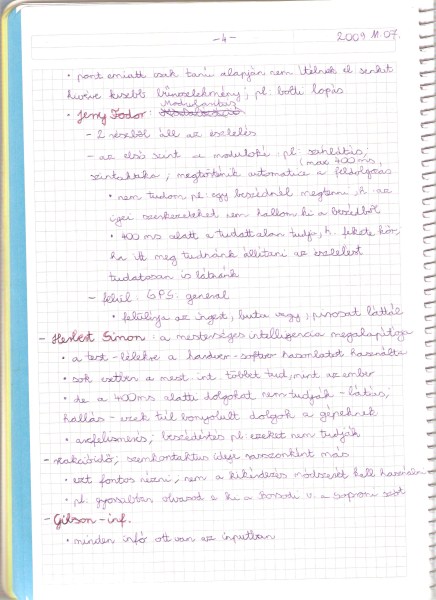 -4-
2009 11. 07.
• pont emiatt csak tanú alapján nem ítélnek el senkit
kivéve kisebb bűncselekmény; pl: bolti lopás
modularitás
• Jerry Fodor:
- 2 részből áll az észlelés
- az első szint a modulok: pl: színlátás,
(max 400 ms,
szintaktika; megtörténik automatice a feldolgozás
• nem tudom pl: egy beszédnél megtenni, h. az
igei szerkezeteket nem hallom ki a beszédből
• 400 ms alatt a tudatt alan tudja, h. fekete kör,
ha itt meg tudnánk állítani az észlelést
tudatosan is látnánk
- felül: GPS: general
• felülírja az ingert, buta vagy, pirosat láttál
- Herbert Simon: a mesterséges intelligencia megalapítója
• a test-lélekre a hardver-softver hasonlatot használta
• sok esetben a mest. int. többet tud, mint az ember
• de a 400ms alatti dolgokat nem tudják - látás;
hallás - ezek túl bonyolult dolgok a gépeknek
• arcfelismerés; beszédértés pl: ezeket nem tudják
- reakcióidő; szemkontaktus ideje rasszonként más
• ezt fontos nézni; nem a kikérdezés módszerét kell használni
• pl: gyorsabban olvasod e ki a Borsodi v. a soproni szót
- Gibson - inf.
• minden infó ott van az inputban